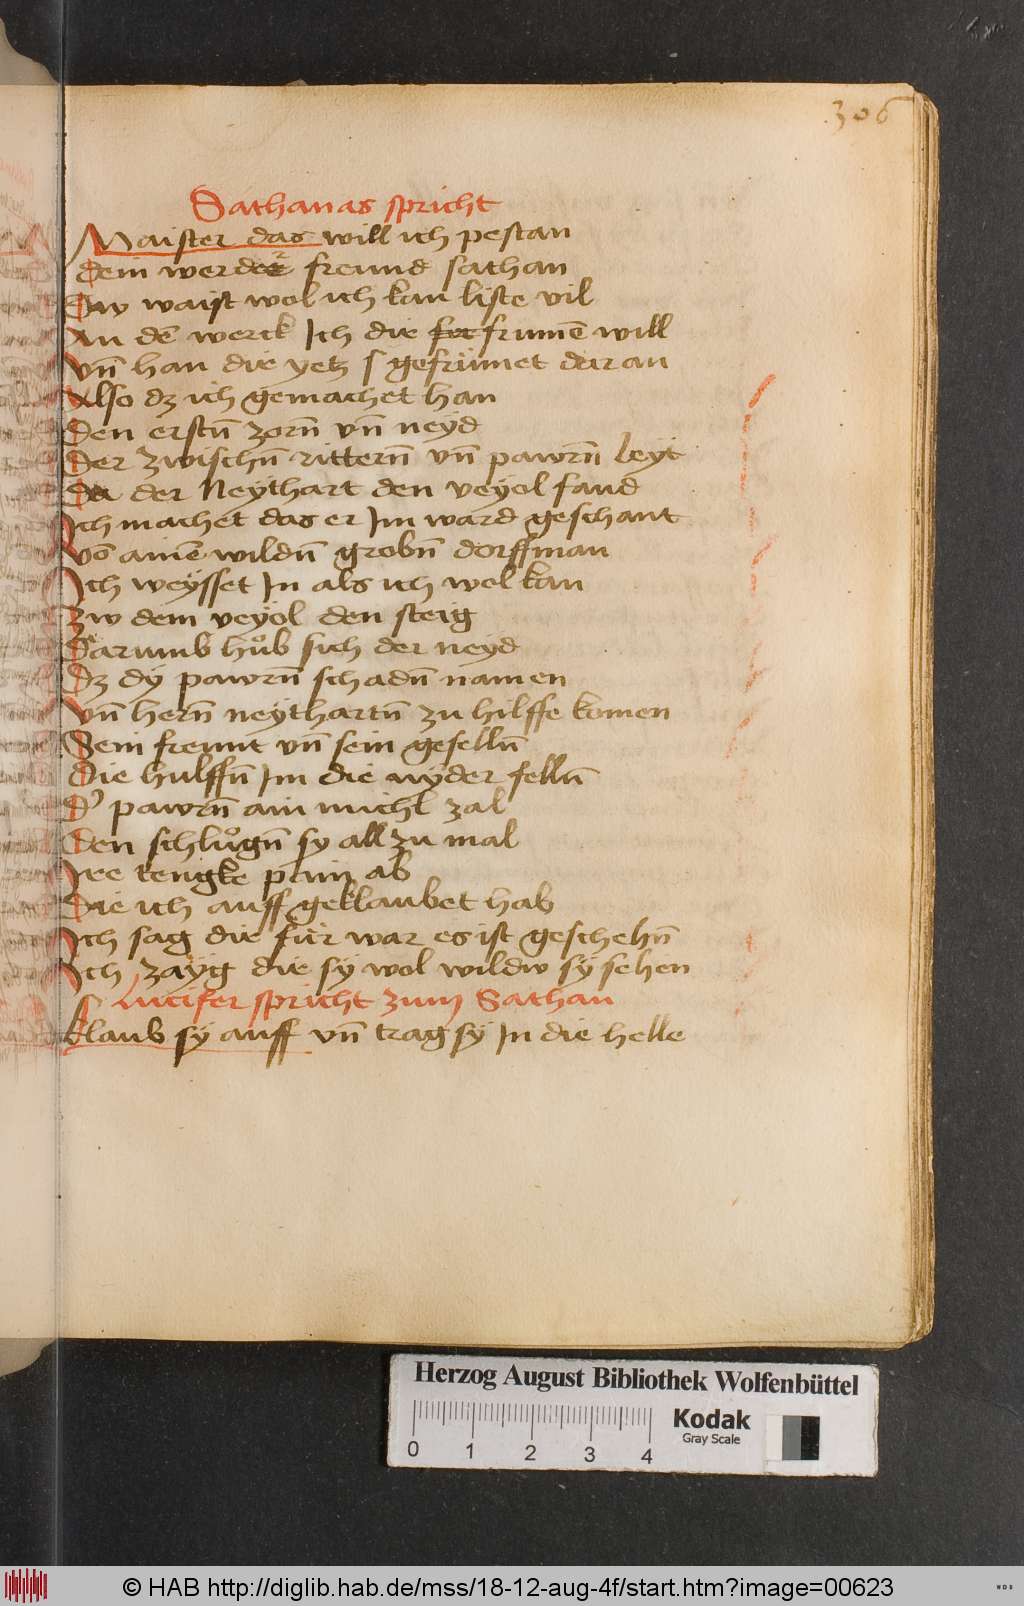 306
Sathanas spricht
Maister das will ich pestan
Dein werder freund sathan
Dw waist wol ich kan liste vil
An dē werck Ich die frumē will
vn̄ han die yetz gefrümet daran
Also dz ich gemachet han
Den erstn̄ zorn̄ vn̄ neyd
Der zwischn̄ rittern̄ vn̄ pawrn̄ leyt
Da der Neythart den veyel fand
Ich machet das er Im ward geschant
vō ainē wildn̄ grobn̄ dorffman
Ich weysset In als ich wol kan
Zw dem veyol den steig
Darumb hůb sich der neyd
Dz dÿ pawrn̄ schadn̄ namen
vn̄ hern̄ neythartn̄ zu hilffe komen
Sein freunt vn̄ sein geselln̄
Die hulffn̄ Im die nyder felln̄
D' pawrn̄ ain michl zal
Den schlůgn̄ sy all zu mal
Ire tengke pain ab
Die ich auff geklaubet hab
Ich sag die für war es ist geschehn̄
Ich zayg die sy wol wildw sÿ sehen
Lucifer spricht zum Sathan
klaub sÿ auff vn̄ trag sÿ In die helle
Herzog August Bibliothek Wolfenbüttel
0 1 2 3 4
Kodak
Gray Scale
© HAB http://diglib.hab.de/mss/18-12-aug-4f/start.htm?image=00623